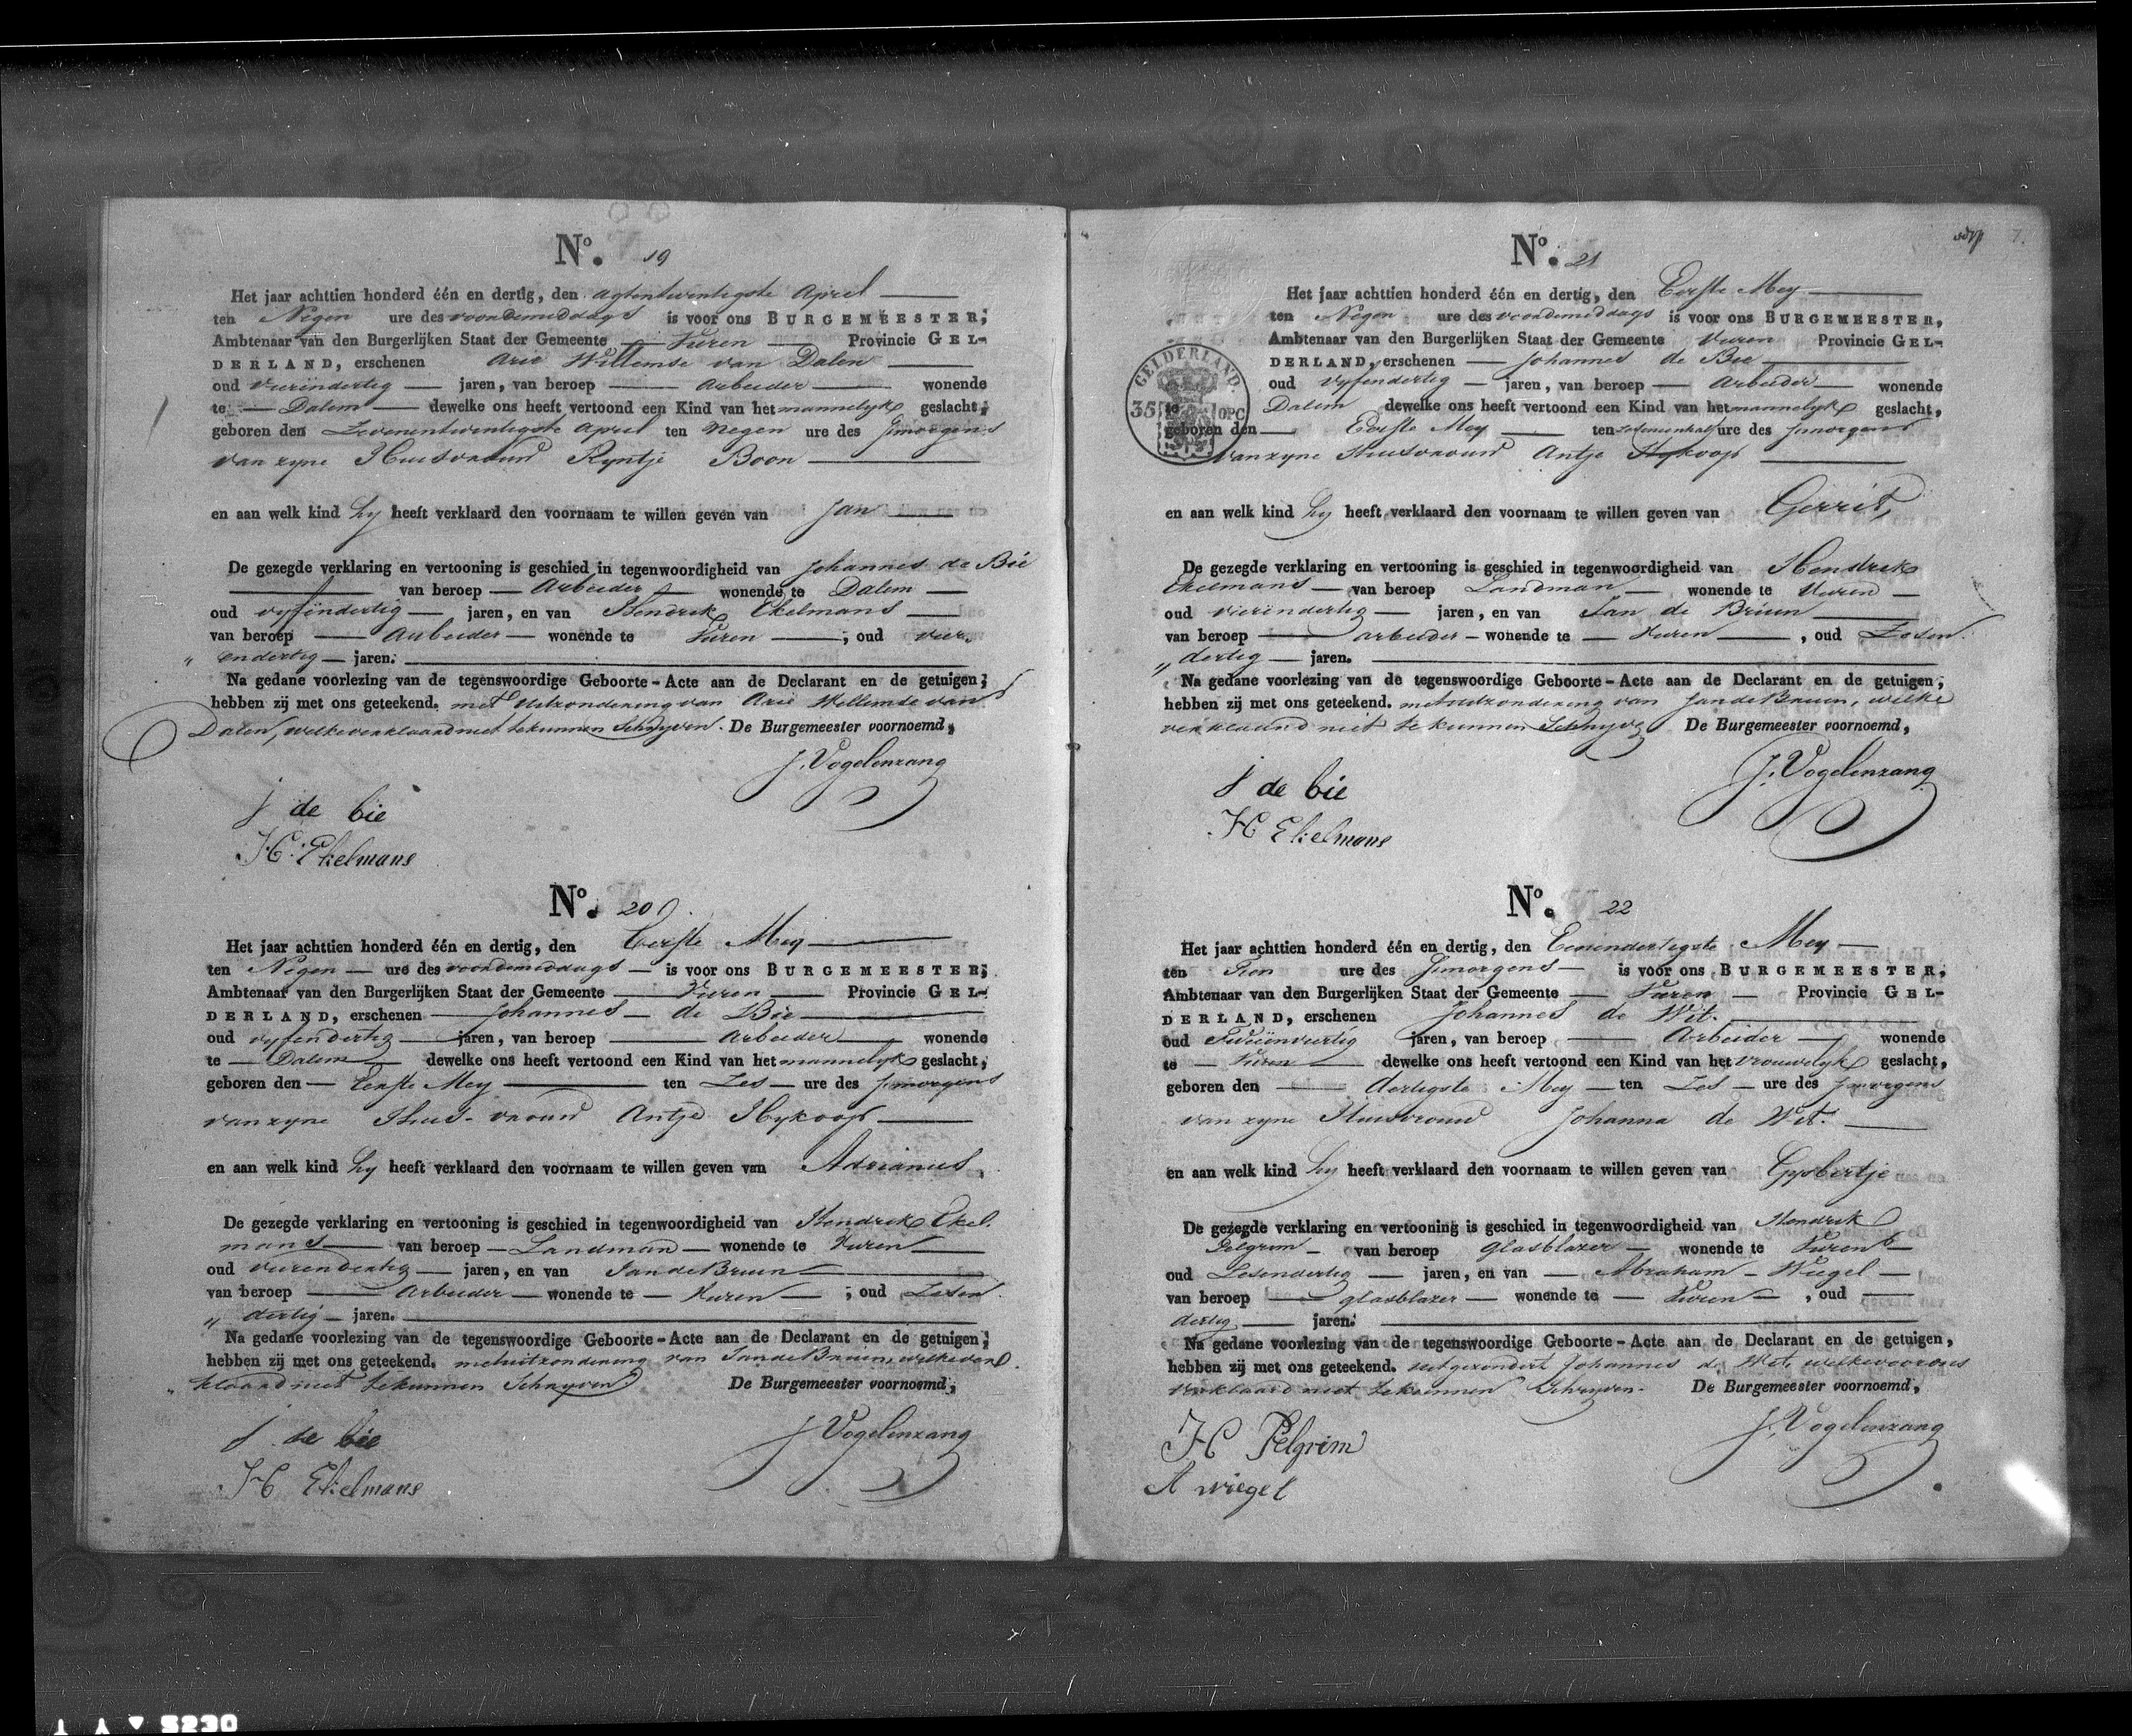 No. 19
Het jaar achttien honderd één en dertig, den agtentwintigste April
ten Negen ure des voordemiddags is voor ons BURGEMEESTER,
Ambtenaar van den Burgerlijken Staat der Gemeente Vuren Provincie GEL-
DERLAND, erschenen Arie Willemse van Dalen
oud vierendertig jaren, van beroep Arbeider wonende
te Dalem dewelke ons heeft vertoond een Kind van het mannelyk geslacht,
geboren den Zevenentwintigste April ten negen ure des smorgens
van zyne Huisvrouw Ryntje Boon
en aan welk kind hy heeft verklaard den voornaam te willen geven van Jan
De gezegde verklaring en vertooning is geschied in tegenwoordigheid van Johannes de Bie
van beroep Arbeider wonende te Dalem
oud vyfendertig jaren, en van Hendrik Ekelmans
van beroep Arbeider wonende te Vuren, oud vier
„ endertig jaren.
Na gedane voorlezing van de tegenswoordige Geboorte-Acte aan de Declarant en de getuigen,
hebben zij met ons geteekend. met uitzondering van Arie Willemse van
Dalen, welke verklaard niet te kunnen Schryven. De Burgemeester voornoemd,
J. Vogelenzang
j de bie
H. Ekelmans
No. 20
Het jaar achttien honderd één en dertig, den Eerste Mey
ten Negen ure des voordemiddags is voor ons BURGEMEESTER,
Ambtenaar van den Burgerlijken Staat der Gemeente Vuren Provincie GEL-
DERLAND, erschenen Johannes de Bie
oud vyfendertig jaren, van beroep Arbeider wonende
te Dalem dewelke ons heeft vertoond een Kind van het mannelyk geslacht,
geboren den Eerste Mey ten Zes ure des smorgens
van zyne Huis-vrouw Antje Hykoop
en aan welk kind hy heeft verklaard den voornaam te willen geven van Adrianus,
De gezegde verklaring en vertooning is geschied in tegenwoordigheid van Hendrik Ekel
mans van beroep Landman wonende te Vuren
oud vierendertig jaren, en van Jan de Bruin
van beroep Arbeider wonende te Vuren, oud Zesen
„ dertig jaren.
Na gedane voorlezing van de tegenswoordige Geboorte-Acte aan de Declarant en de getuigen,
hebben zij met ons geteekend. met uitzondering van Jan de Bruin, welke ver
klaard niet te kunnen Schryven De Burgemeester voornoemd,
J Vogelenzang
j de bie
H Ekelmans
7.
No. 21
Het jaar achttien honderd één en dertig, den Eerste Mey
ten Negen ure des voordemiddags is voor ons BURGEMEESTER,
Ambtenaar van den Burgerlijken Staat der Gemeente Vuren Provincie GEL-
DERLAND, erschenen Johannes de Bie
oud vyfendertig jaren, van beroep Arbeider wonende
te Dalem dewelke ons heeft vertoond een Kind van het mannelyk geslacht,
geboren den Eerste Mey ten ure des smorgens
van zyne Huisvrouw Antje Hykoop
GELDERLAND.
35 OPC
en aan welk kind hy heeft verklaard den voornaam te willen geven van Gerrit,
De gezegde verklaring en vertooning is geschied in tegenwoordigheid van Hendrik
Ekelmans van beroep Landman wonende te Vuren
oud vierendertig jaren, en van Jan de Bruin
van beroep arbeider wonende te Vuren, oud Zesen
„ dertig jaren.
Na gedane voorlezing van de tegenswoordige Geboorte-Acte aan de Declarant en de getuigen,
hebben zij met ons geteekend. met uitzondering van Jan de Bruin, welke
verklaard niet te kunnen Schryve De Burgemeester voornoemd,
J. Vogelenzang
j de bie
H Ekelmans
No. 22
Het jaar achttien honderd één en dertig, den Eenendertigste Mey
ten Tien ure des smorgens is voor ons BURGEMEESTER,
Ambtenaar van den Burgerlijken Staat der Gemeente Vuren Provincie GEL-
DERLAND, erschenen Johannes de Wit.
oud Tweeenveertig jaren, van beroep Arbeider wonende
te Vuren dewelke ons heeft vertoond een Kind van het vrouwelyk geslacht,
geboren den dertigste Mey ten Zes ure des smorgens
van zyne Huisvrouw Johanna de Wit.
en aan welk kind hy heeft verklaard den voornaam te willen geven van Gysbertje
De gezegde verklaring en vertooning is geschied in tegenwoordigheid van Hendrik
Pelgrim van beroep Glasblazer wonende te Vuren
oud Zesendertig jaren, en van Abraham Wiegel
van beroep glasblazer wonende te Vuren, oud
dertig jaren.
Na gedane voorlezing van de tegenswoordige Geboorte-Acte aan de Declarant en de getuigen,
hebben zij met ons geteekend. uitgezondert Johannes de Wit, welke voor ons
verklaard niet te kunnen Schryven. De Burgemeester voornoemd,
J. Vogelenzang
H Pelgrim
A wiegel
5230